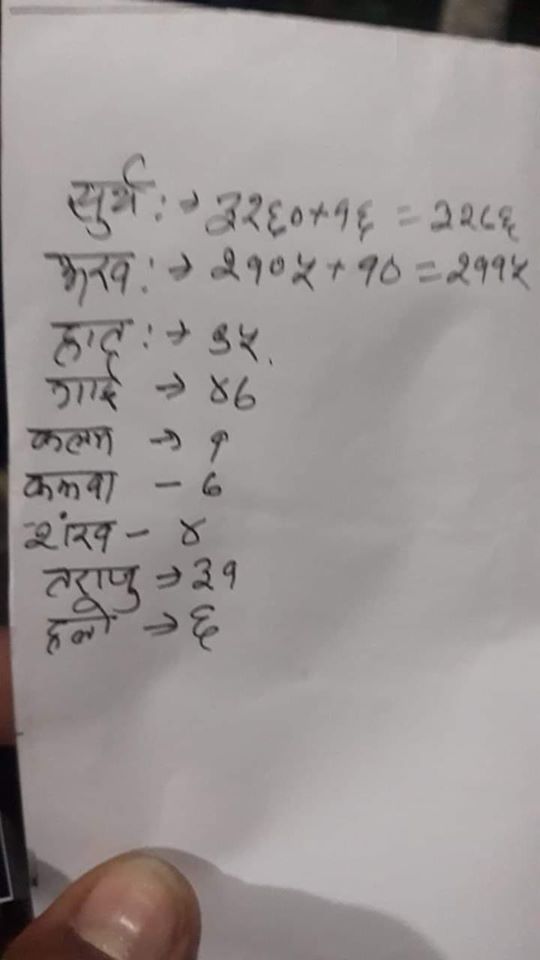 सुर्य :→ ३२६०+१६ = ३२८६
रुख :→ २१०५ + १० = २११५
हात :→ ३५.
गाई → ४७
कलम → १
कलवा – ७
शंख – ४
तराजु → ३१
हलो → ६